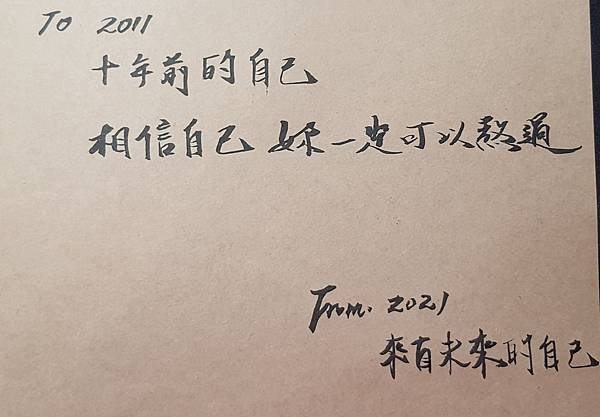 To 2011
十年前的自己
相信自己 妳一定可以熬過
From. 2021
來自未來的自己